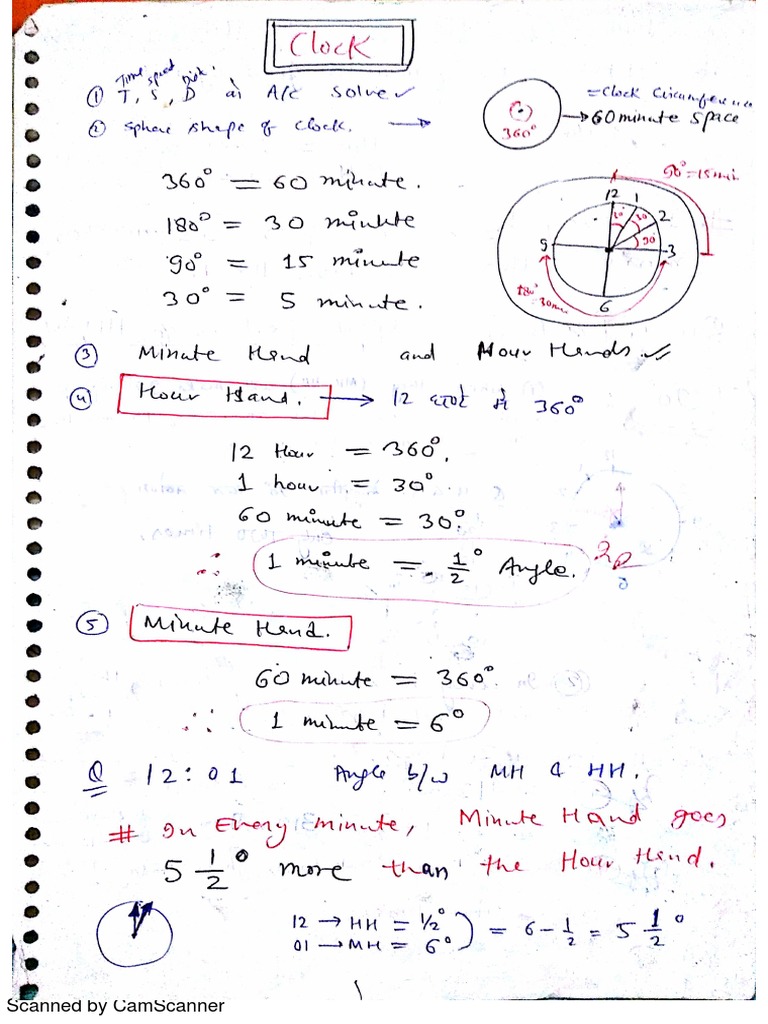 Clock
Time speed Dist.
① T, S, D से A/c solve
② sphere shape of clock. →
= Clock Circumference
→ 60 minute space
360°
360° = 60 minute.
180° = 30 minute
90° = 15 minute
30° = 5 minute.
90° = 15 min.
12 1 2 3 6 9
30° 30 90
180° 30 min.
③ Minute Hand and Hour Hands.
④ Hour Hand. → 12 घण्टे में 360°
12 Hour = 360°.
1 hour = 30°.
60 minute = 30°.
∴ 1 minute = 1/2° Angle.
⑤ Minute Hand.
60 minute = 360°.
∴ 1 minute = 6°
Q 12:01 Angle b/w MH & HH.
# In Every minute, Minute Hand goes
5 1/2° more than the Hour Hand.
12 → HH = 1/2°
01 → MH = 6°
) = 6 - 1/2 = 5 1/2°
Scanned by CamScanner